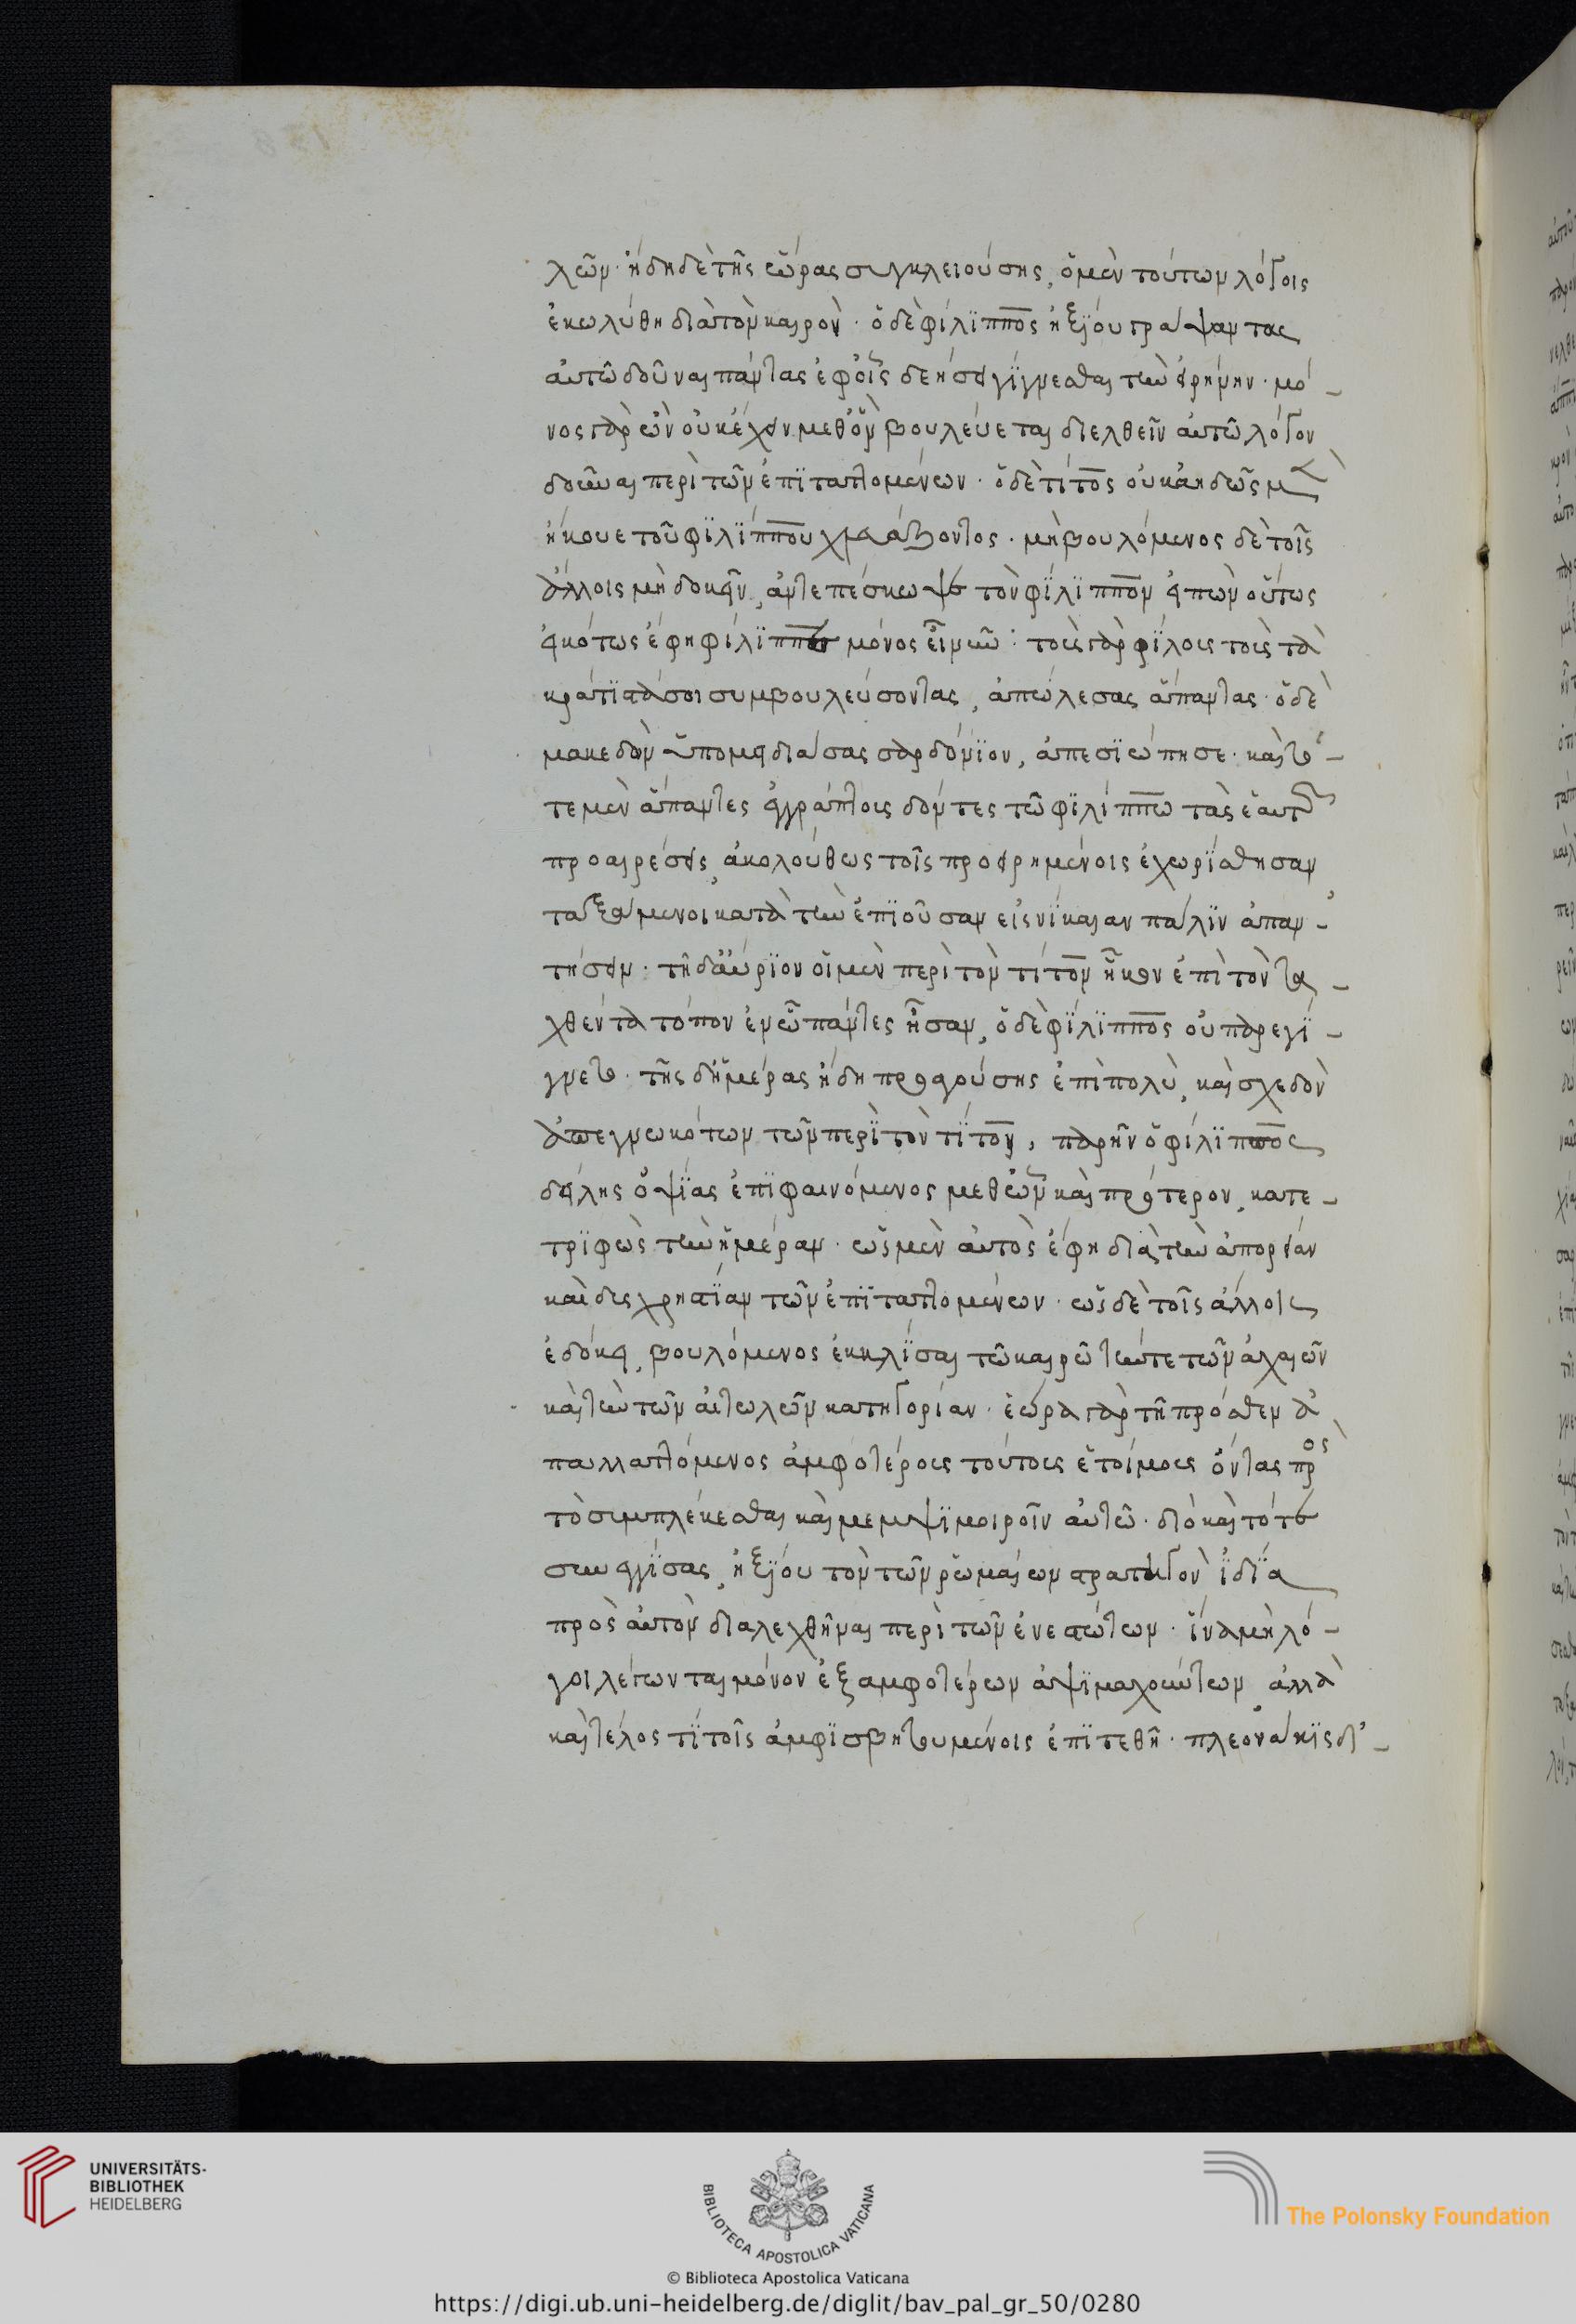 λῶν· ἤδη δὲ τῆς ὥρας συγκλειούσης, ὁ μὲν τούτων λόγοις
ἐκωλύθη διὰ τὸν καιρὸν· ὁ δὲ φίλϊππος ἠξίου γράψαντας
αὐτῶ δοῦναι πάντας ἐφ οἷς δεήσει γίγνεσθαι τὴν εἰρήνην· μό-
νος γὰρ ὢν οὐκ ἔχειν μεθ ὧν βουλεύεται διελθεῖν αὐτῶ λόγον
δοῦναι περὶ τῶν ἐπϊταττομένων· ὁ δὲ τίτος οὐκ ἀηδῶς μὲν
ἤκουε τοῦ φϊλίππου χλευάζοντος· μὴ βουλόμενος δὲ τοῖς
ἄλλοις μὴ δοκεῖν, ἀντεπέσκωψε τὸν φίλϊππον εἰπὼν οὕτως
εἰκότως ἔφη φίλϊππε μόνος εἶ νῦν: τοὺς γὰρ φίλους τοὺς τὰ
κράτϊστά σοι συμβουλεύσοντας, ἀπώλεσας ἅπαντας· ὁ δὲ
μακεδὼν ὑπομειδιάσας σαρδόνϊον, ἀπεσϊώπησε· καὶ τό-
τε μὲν ἅπαντες ἐγγράπτους δόντες τῶ φϊλίππω τὰς ἑαυτῶν
προαιρέσεις, ἀκολούθως τοῖς προειρημένοις ἐχωρίσθησαν
ταξάμενοι κατὰ τὴν ἐπϊοῦσαν εἰς νίκαιαν πάλϊν ἀπαν-
τήσειν· τῆ δ αὔριον οἱ μὲν περὶ τὸν τίτον ἧκον ἐπὶ τὸν τα-
χθέντα τόπον ἐν ὧ πάντες ἦσαν, ὁ δὲ φϊλϊππος οὐ παρεγί-
γνετο· τῆς δ ἡμέρας ἤδη προαγούσης ἐπὶ πολὺ, καὶ σχεδὸν
ἀπεγνωκότων τῶν περὶ τὸν τίτον, παρῆν ὁ φίλϊππος
δείλης ὀψίας ἐπϊφαινόμενος μεθ ὧν καὶ πρότερον, κατε-
τρϊφὼς τὴν ἡμέραν· ὡς μὲν αὐτὸς ἔφη διὰ τὴν ἀπορείαν
καὶ δυσχρηστίαν τῶν ἐπϊταττομένων· ὡς δὲ τοῖς ἄλλοις
ἐδόκει, βουλόμενος ἐκκλῖσαι τῶ καιρῶ τήν τε τῶν ἀχαιῶν
καὶ τὴν τῶν αἰτωλῶν κατηγορίαν· ἑώρα γὰρ τῆ πρόσθεν ἀ
παλλαττόμενος ἀμφοτέρους τούτους ἑτοίμους ὄντας πρὸς
τὸ συμπλέκεσθαι καὶ μεμψϊμοιρεῖν αὐτῶ· διὸ καὶ τότε
συνεγγίσας, ἠξίου τὸν τῶν ῥωμαίων στρατηγὸν ἰδία
πρὸς αὐτὸν διαλεχθῆναι περὶ τῶν ἐνεστώτων· ἵνα μὴ λό-
γοι λείπωνται μόνον ἐξ αμφοτέρων ἁψϊμαχούντων, ἀλλὰ
καὶ τέλος τϊ τοῖς ἀμφϊσβητουμένοις ἐπϊτεθῆ· πλεονάκϊς δ-
UNIVERSITÄTS-
BIBLIOTHEK
HEIDELBERG
BIBLIOTECA APOSTOLICA VATICANA
The Polonsky Foundation
© Biblioteca Apostolica Vaticana
https://digi.ub.uni-heidelberg.de/diglit/bav_pal_gr_50/0280